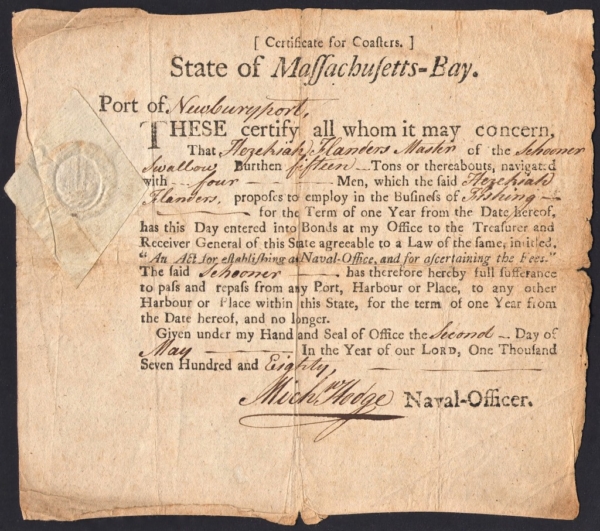 [ Certificate for Coasters. ]
State of Maſſachuſetts-Bay.
Port of Newburyport,
THESE certify all whom it may concern,
That Hezekiah Flanders Master of the Schooner
Swallow Burthen fifteen Tons or thereabouts, navigated
with four Men, which the ſaid Hezekiah
Flanders, propoſes to employ in the Buſineſs of Fishing
for the Term of one Year from the Date hereof,
has this Day entered into Bonds at my Office to the Treaſurer and
Receiver General of this State agreeable to a Law of the ſame, intitled,
"An Act for eſtabliſhing a Naval-Office, and for aſcertaining the Fees."
The ſaid Schooner has therefore hereby full ſufferance
to paſs and repaſs from any Port, Harbour or Place, to any other
Harbour or Place within this State, for the term of one Year from
the Date hereof, and no longer.
Given under my Hand and Seal of Office the Second Day of
May In the Year of our LORD, One Thouſand
Seven Hundred and Eighty,
Mich Hodge Naval-Officer.